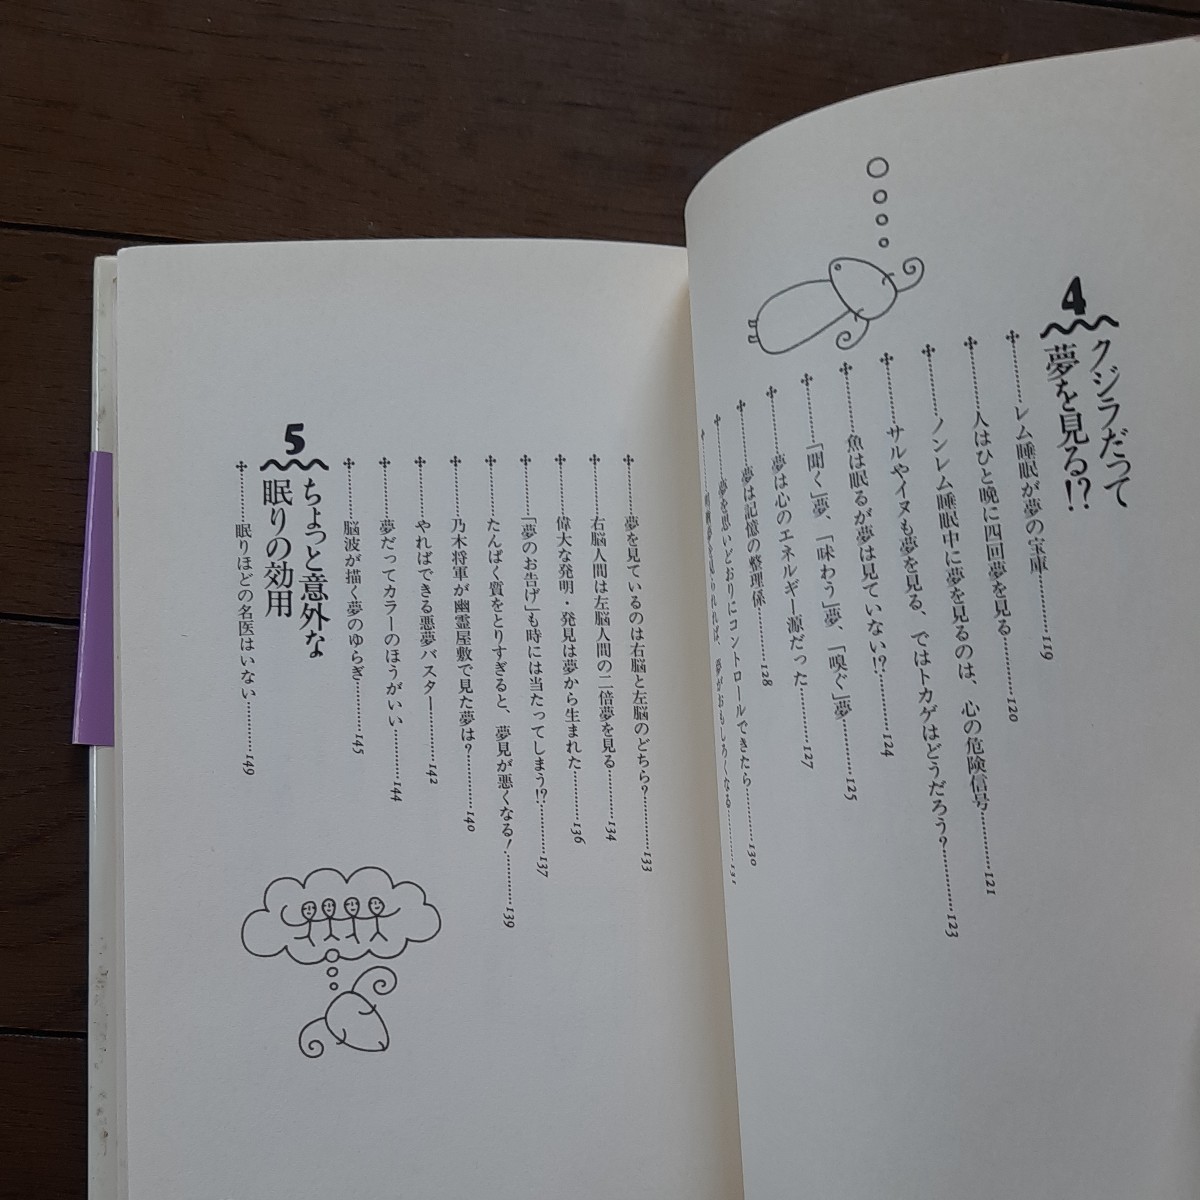 4
クジラだって
夢を見る!?
レム睡眠が夢の宝庫………119
人はひと晩に四回夢を見る………120
ノンレム睡眠中に夢を見るのは、心の危険信号………121
サルやイヌも夢を見る、ではトカゲはどうだろう?………123
魚は眠るが夢は見ていない!?………124
「聞く」夢、「味わう」夢、「嗅ぐ」夢………125
夢は心のエネルギー源だった………127
夢は記憶の整理係………128
夢を思いどおりにコントロールできたら………130
夢がおもしろくなる………131
夢を見ているのは右脳と左脳のどちら?………133
右脳人間は左脳人間の二倍夢を見る………134
偉大な発明・発見は夢から生まれた………136
「夢のお告げ」も時には当たってしまう!?………137
たんぱく質をとりすぎると、夢見が悪くなる!………139
乃木将軍が幽霊屋敷で見た夢は?………140
やればできる悪夢バスター………142
夢だってカラーのほうがいい………144
脳波が描く夢のゆらぎ………145
5
ちょっと意外な
眠りの効用
眠りほどの名医はいない………149